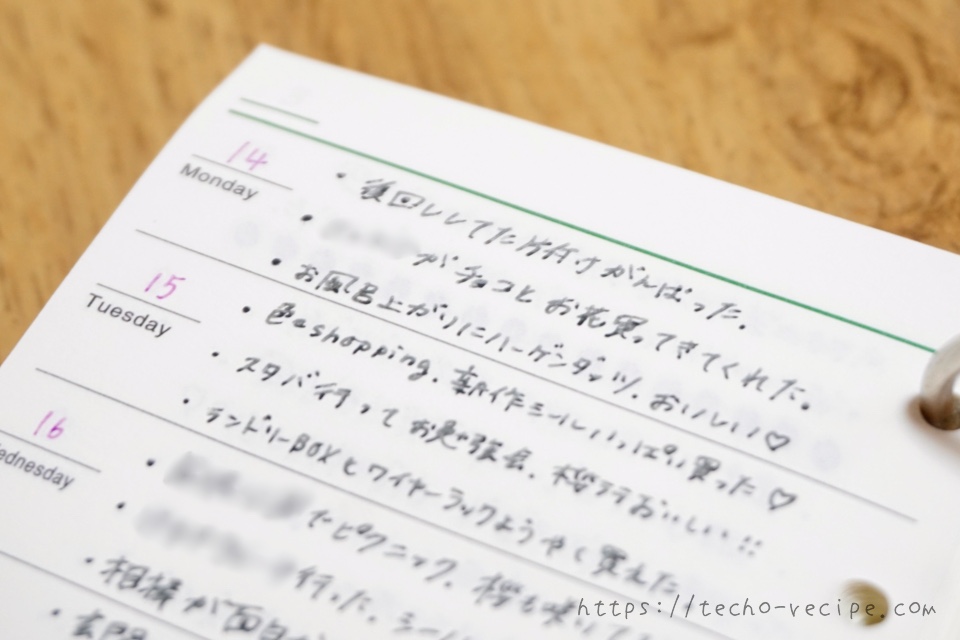 14
Monday
・後回しにしてた片付けがんばった.
・がチョコとお花買ってきてくれた.
・お風呂上がりにハーゲンダッツ. おいしい♡
15
Tuesday
・色々shopping. 新作シールいっぱい買った♡
・スタバ行ってお勉強会. 桜ラテおいしい!!
・ランドリーBOXとワイヤーラックようやく買えた
16
Wednesday
・でピクニック. 桜も咲いて
・行った. シール
・相棒が面白
・玄関
https://techo-recipe.com